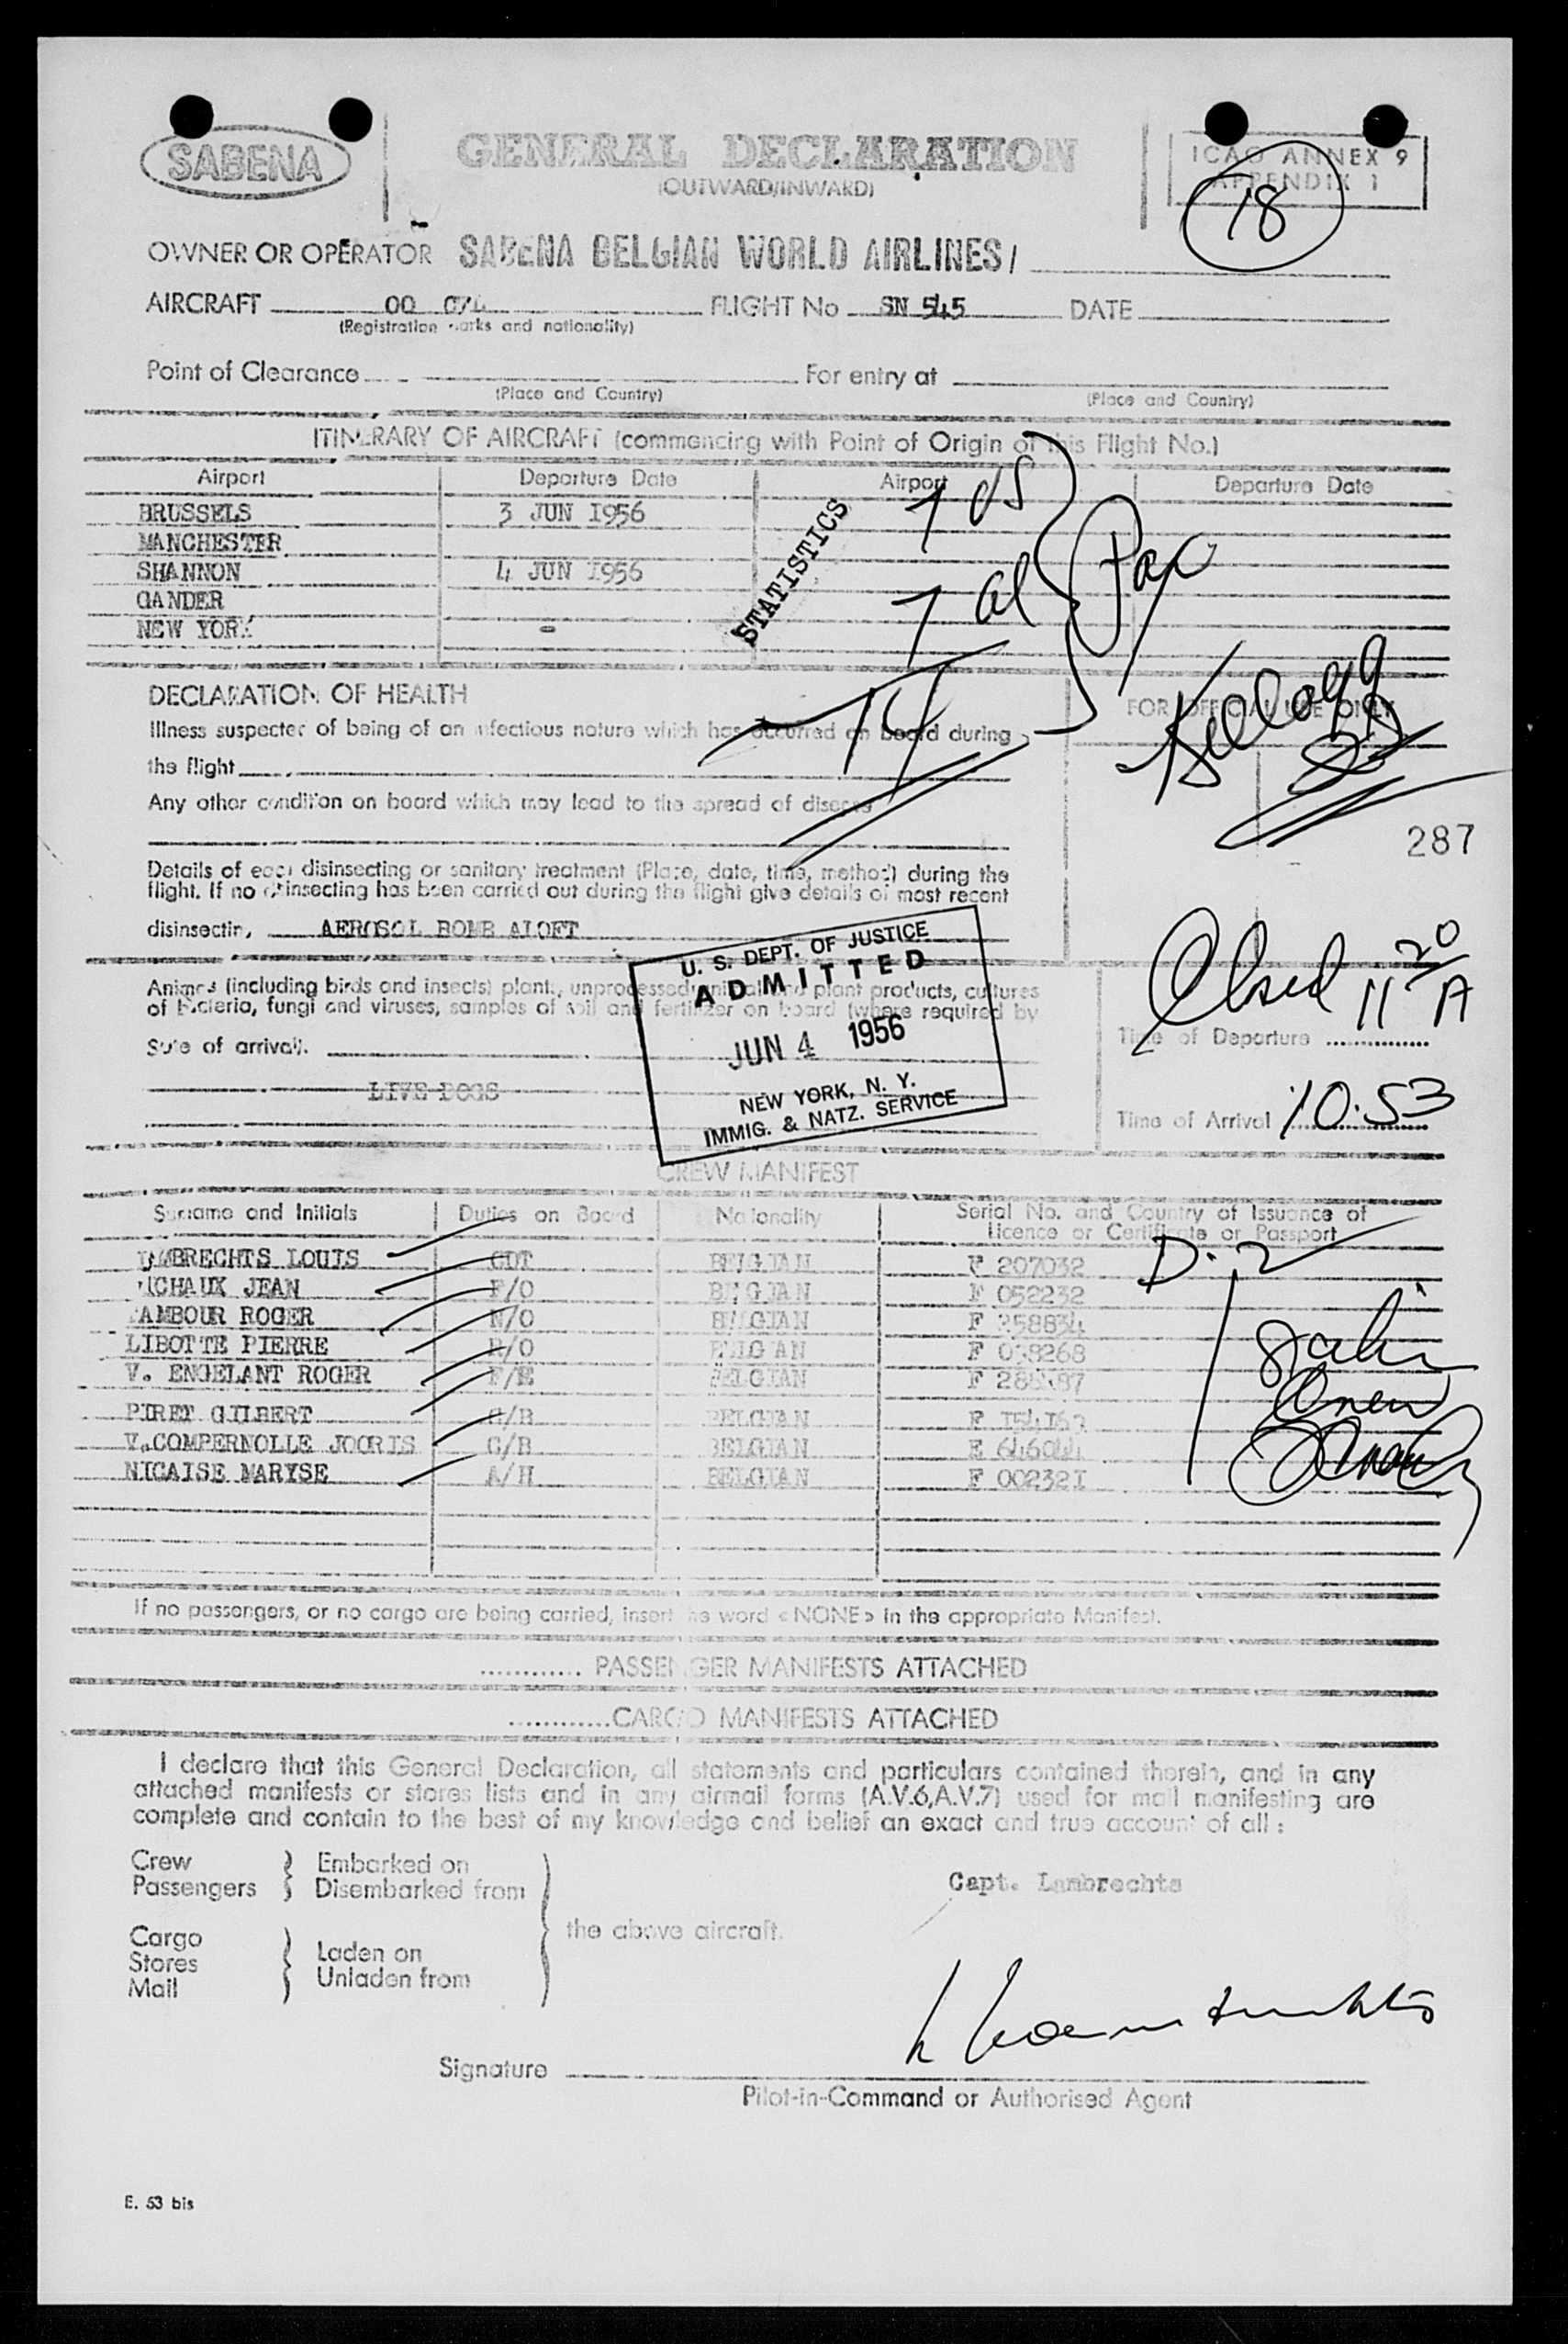 SABENA
GENERAL DECLARATION
(OUTWARD/INWARD)
ICAO ANNEX 9
APPENDIX 1
18
OWNER OR OPERATOR SABENA BELGIAN WORLD AIRLINES/
AIRCRAFT OO FLIGHT No SN 545 DATE
(Registration marks and nationality)
Point of Clearance For entry at
(Place and Country) (Place and Country)
ITINERARY OF AIRCRAFT (commencing with Point of Origin of this Flight No.)
Airport Departure Date Airport Departure Date
BRUSSELS 3 JUN 1956
MANCHESTER
SHANNON 4 JUN 1956
GANDER
NEW YORK -
STATISTICS
7 US
7 al
Pax
14
Kellogg
DECLARATION OF HEALTH
FOR OFFICIAL USE ONLY
Illness suspected of being of an infectious nature which has occurred on board during
the flight
Any other condition on board which may lead to the spread of disease
287
Details of each disinsecting or sanitary treatment (Place, date, time, method) during the
flight. If no disinsecting has been carried out during the flight give details of most recent
disinsectin, AEROSOL BOMB ALOFT
U. S. DEPT. OF JUSTICE
ADMITTED
JUN 4 1956
NEW YORK, N. Y.
IMMIG. & NATZ. SERVICE
Animals (including birds and insects) plants, unprocessed animal and plant products, cultures
of bacteria, fungi and viruses, samples of soil and fertilizer on board (where required by
State of arrival).
LIVE DOGS
Closed 11 20 A
Time of Departure
Time of Arrival 10:53
CREW MANIFEST
Surname and Initials Duties on Board Nationality Serial No. and Country of Issuance of
Licence or Certificate or Passport
LAMBRECHTS LOUIS CDT BELGIAN F 207032
MICHAUX JEAN F/O BELGIAN F 052232
AMBOUR ROGER N/O BELGIAN F
LIBOTTE PIERRE R/O BELGIAN F
V. ENGELANT ROGER F/E BELGIAN F
PIRET GILBERT C/B BELGIAN F
V.COMPERNOLLE JOORIS C/B BELGIAN E 646044
NICAISE MARYSE A/H BELGIAN F 002321
D.2
If no passengers, or no cargo are being carried, insert the word «NONE» in the appropriate Manifest.
............ PASSENGER MANIFESTS ATTACHED
............CARGO MANIFESTS ATTACHED
I declare that this General Declaration, all statements and particulars contained therein, and in any
attached manifests or stores lists and in any airmail forms (A.V.6,A.V.7) used for mail manifesting are
complete and contain to the best of my knowledge and belief an exact and true account of all :
Crew Embarked on
Passengers Disembarked from
Capt. Lambrechts
the above aircraft.
Cargo
Stores Laden on
Mail Unladen from
Signature
Pilot-in-Command or Authorised Agent
E. 53 bis